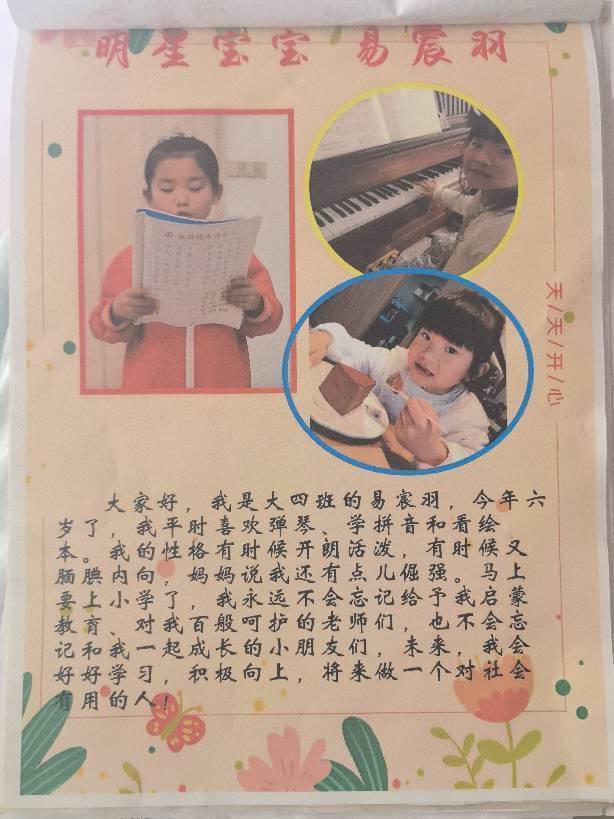 明星宝宝 易宸羽
天/天/开/心
大家好，我是大四班的易宸羽，今年六
岁了，我平时喜欢弹琴、学拼音和看绘
本。我的性格有时候开朗活泼，有时候又
腼腆内向，妈妈说我还有点儿倔强。马上
要上小学了，我永远不会忘记给予我启蒙
教育、对我百般呵护的老师们，也不会忘
记和我一起成长的小朋友们，未来，我会
好好学习，积极向上，将来做一个对社会
有用的人！